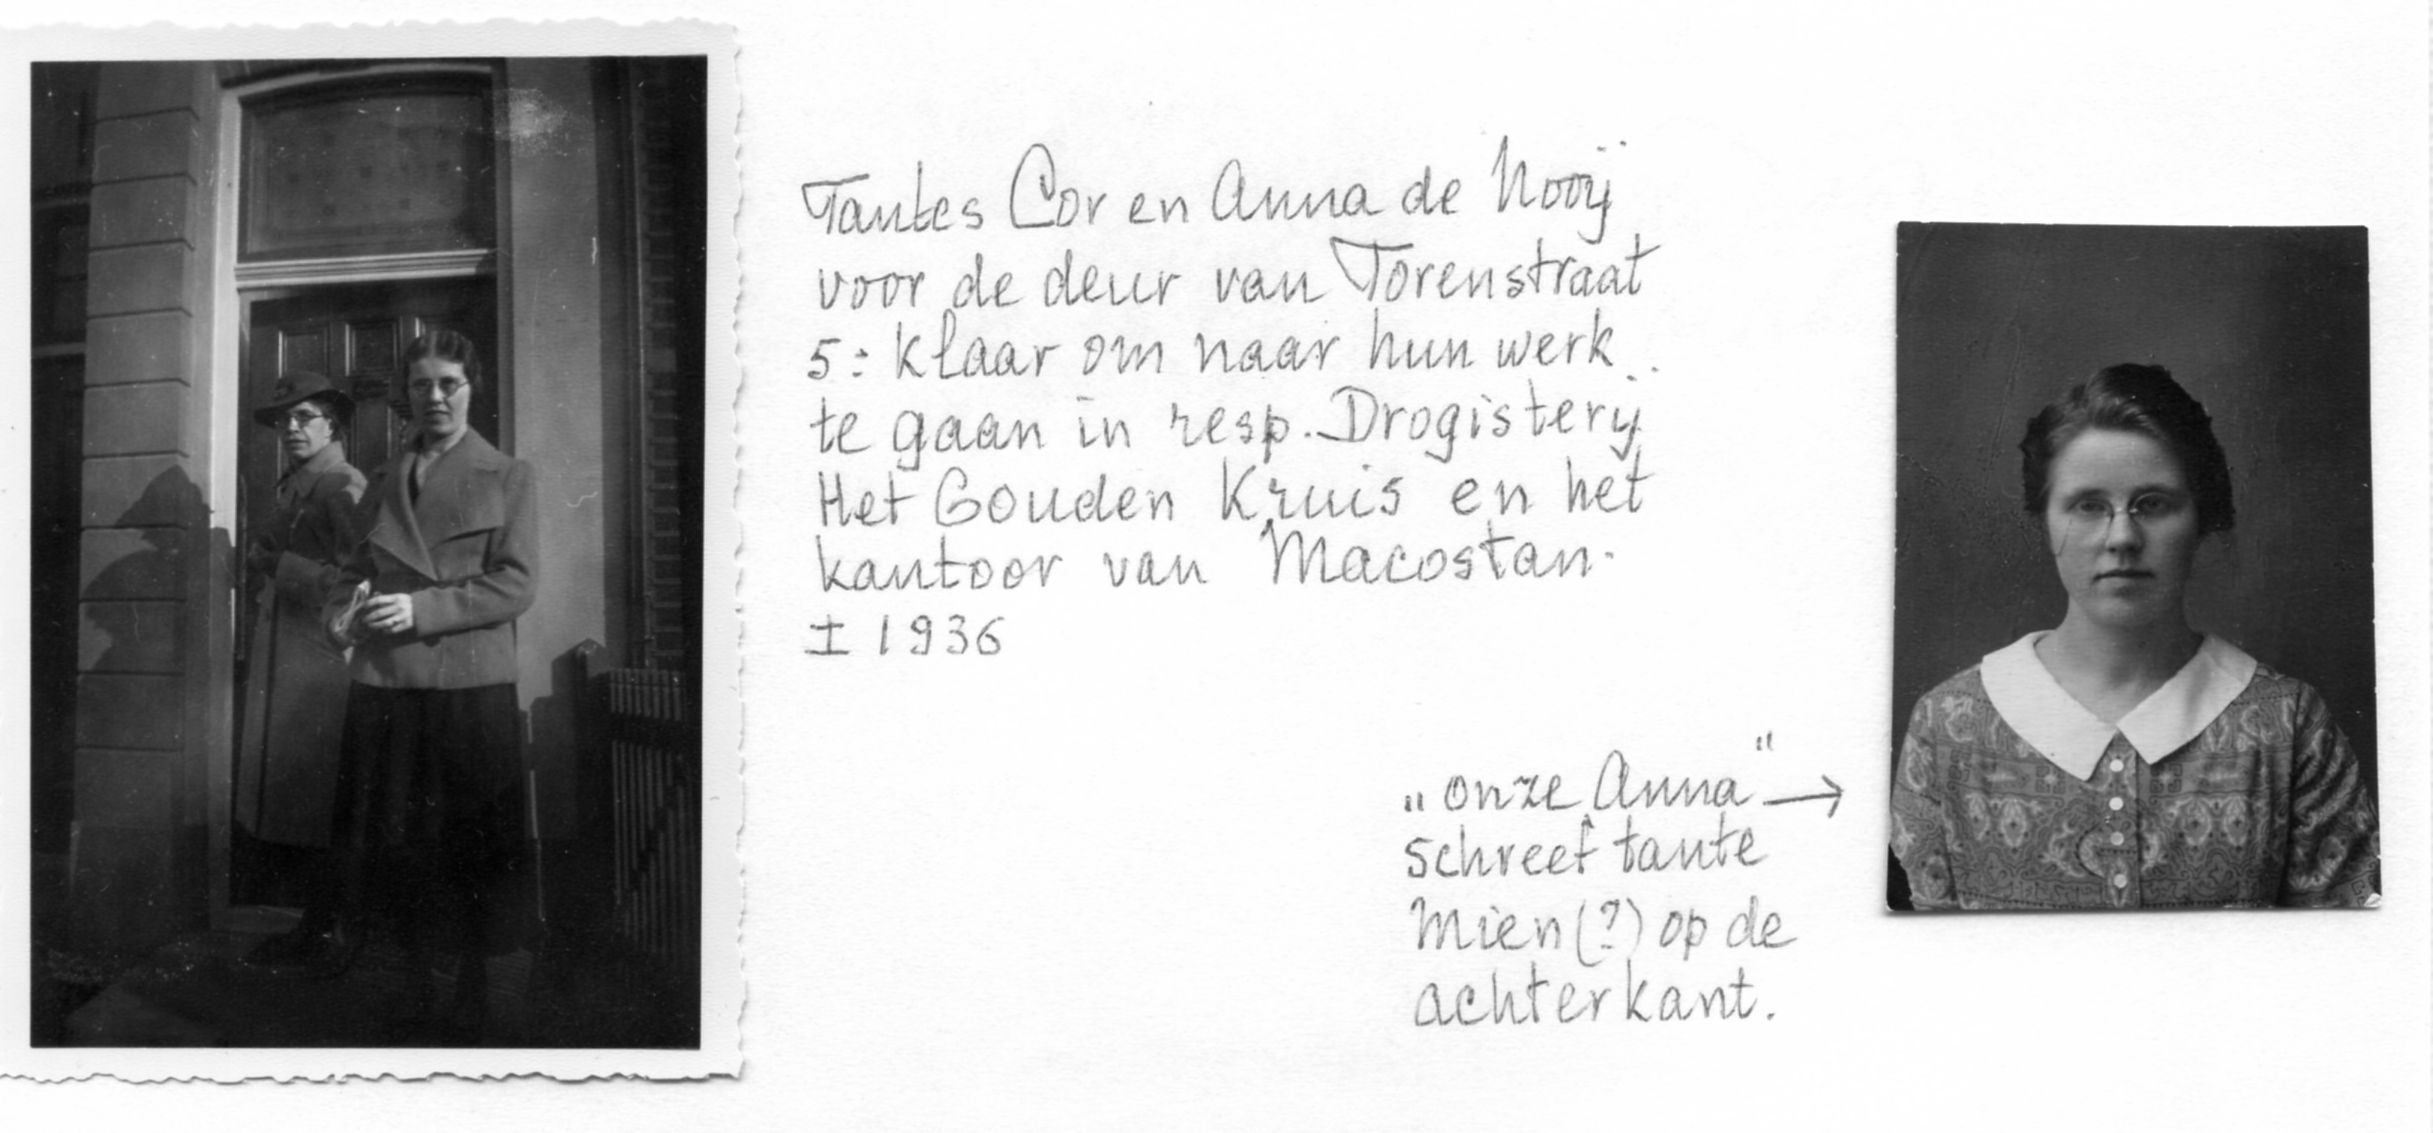 Tantes Cor en Anna de Nooij
voor de deur van Torenstraat
5: klaar om naar hun werk
te gaan in resp. Drogisterij
Het Gouden Kruis en het
kantoor van Macostan.
± 1936
„onze Anna" →
schreef tante
Mien (?) op de
achterkant.